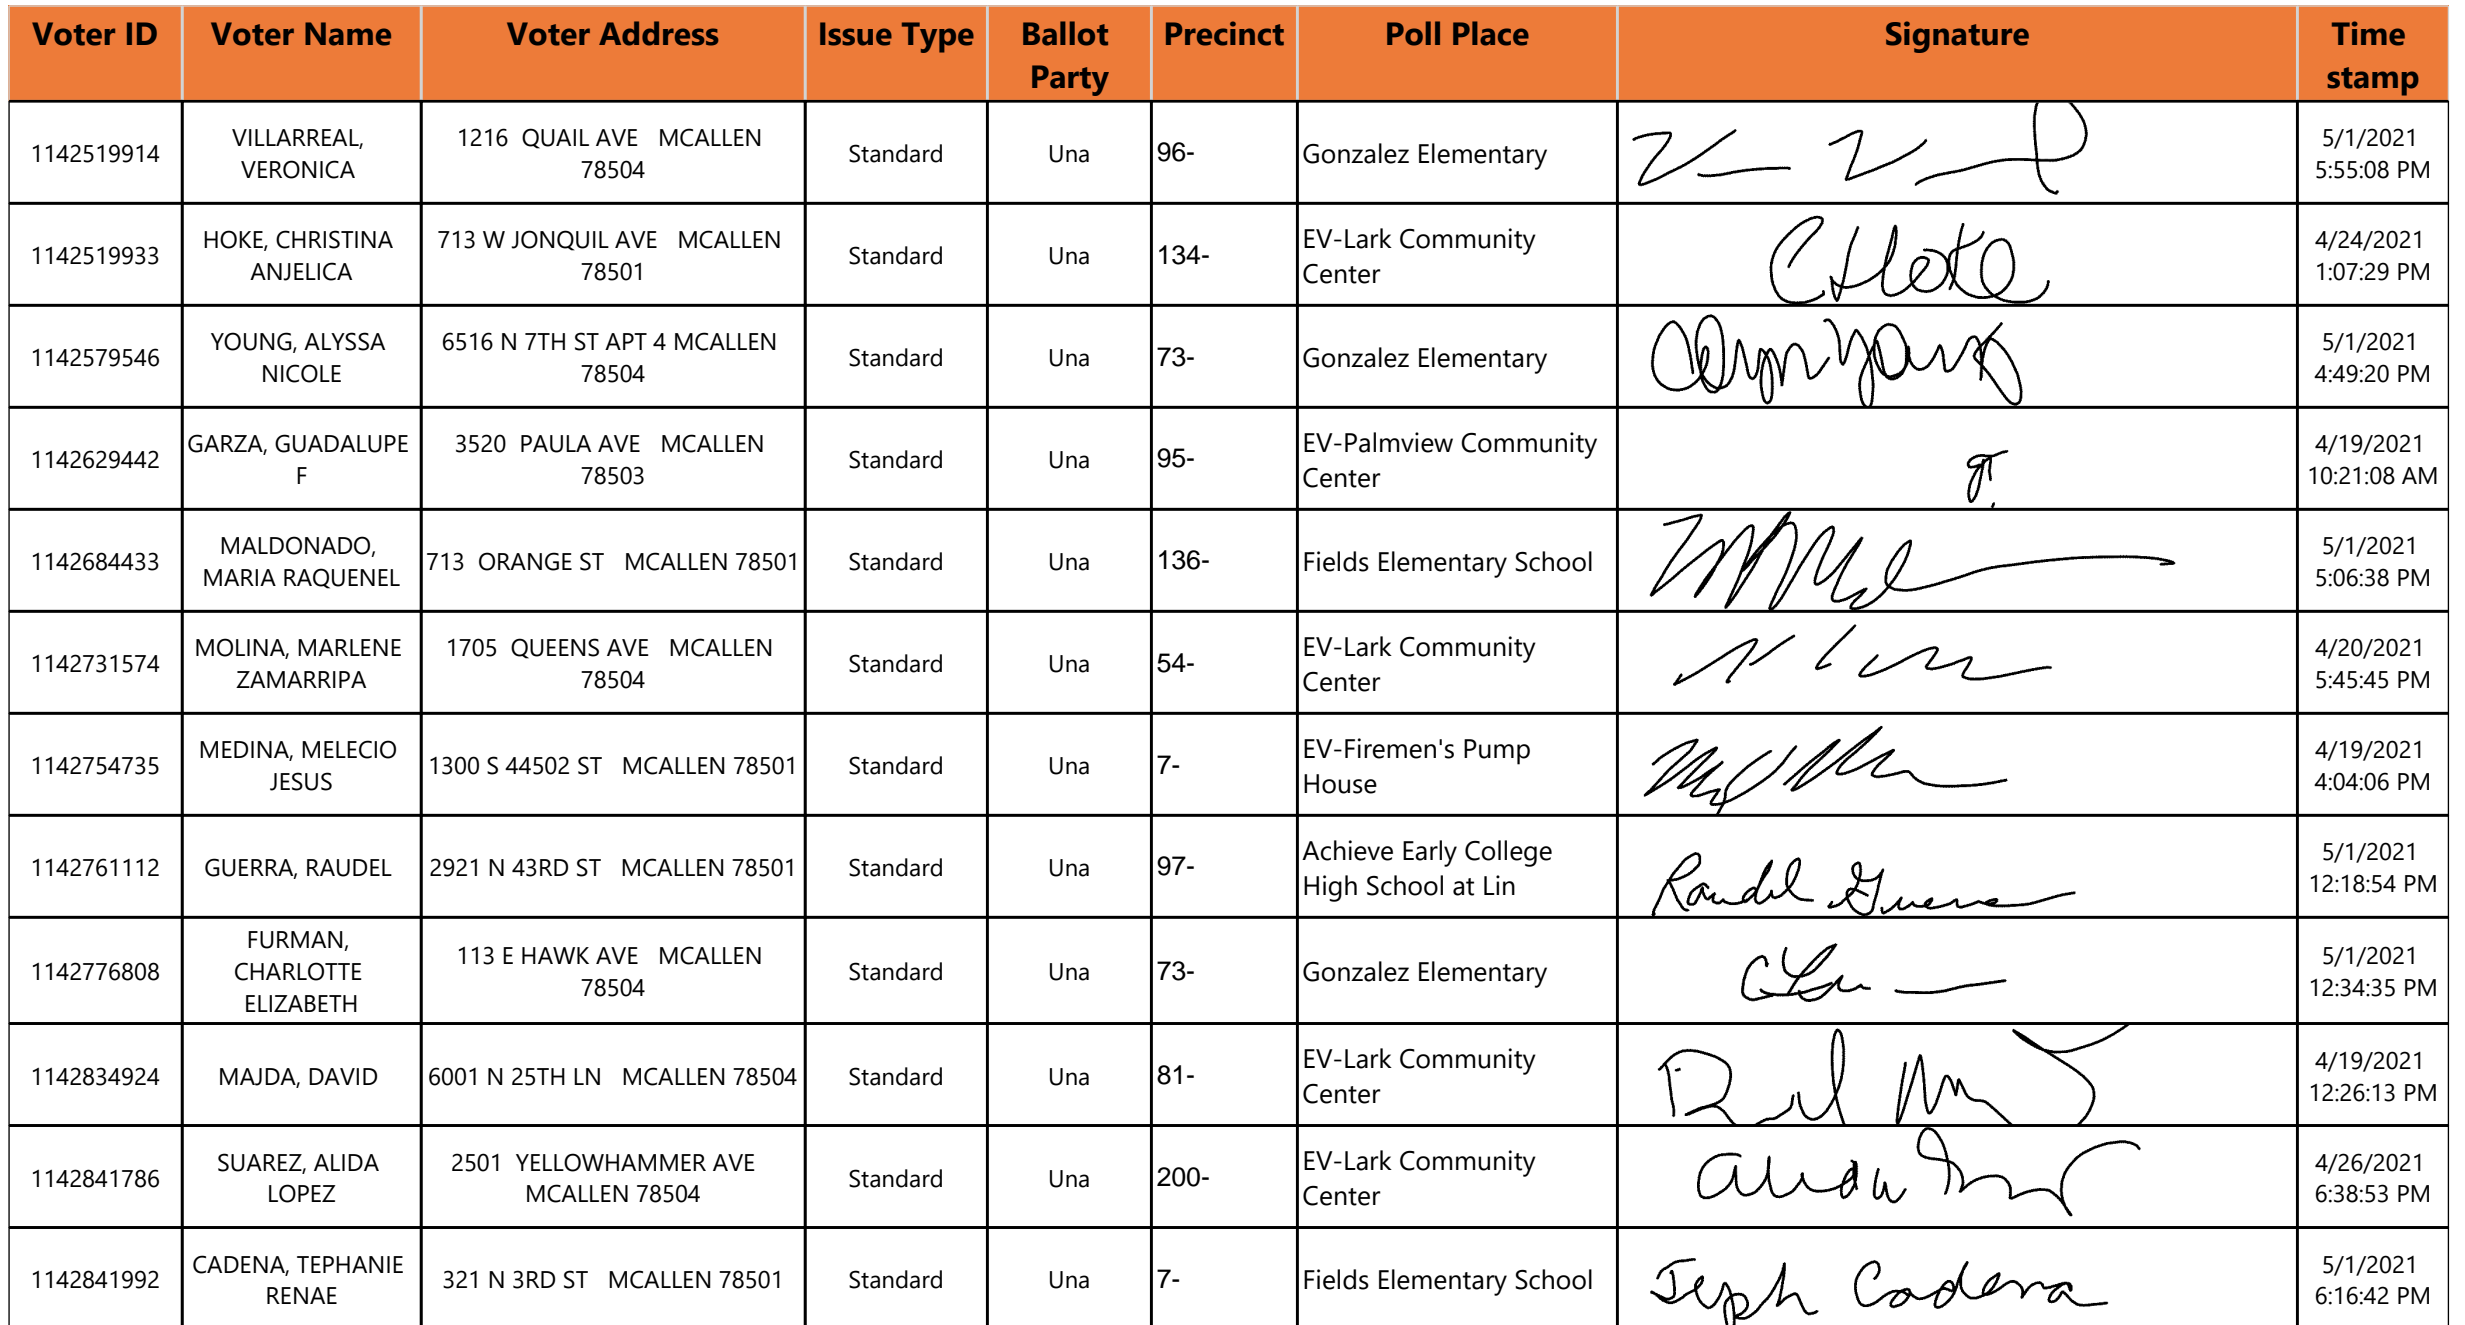 Voter ID Voter Name Voter Address Issue Type Ballot Party Precinct Poll Place Signature Time stamp
1142519914 VILLARREAL, VERONICA 1216 QUAIL AVE MCALLEN 78504 Standard Una 96- Gonzalez Elementary 5/1/2021 5:55:08 PM
1142519933 HOKE, CHRISTINA ANJELICA 713 W JONQUIL AVE MCALLEN 78501 Standard Una 134- EV-Lark Community Center C Hoke 4/24/2021 1:07:29 PM
1142579546 YOUNG, ALYSSA NICOLE 6516 N 7TH ST APT 4 MCALLEN 78504 Standard Una 73- Gonzalez Elementary Young 5/1/2021 4:49:20 PM
1142629442 GARZA, GUADALUPE F 3520 PAULA AVE MCALLEN 78503 Standard Una 95- EV-Palmview Community Center 4/19/2021 10:21:08 AM
1142684433 MALDONADO, MARIA RAQUENEL 713 ORANGE ST MCALLEN 78501 Standard Una 136- Fields Elementary School 5/1/2021 5:06:38 PM
1142731574 MOLINA, MARLENE ZAMARRIPA 1705 QUEENS AVE MCALLEN 78504 Standard Una 54- EV-Lark Community Center 4/20/2021 5:45:45 PM
1142754735 MEDINA, MELECIO JESUS 1300 S 44502 ST MCALLEN 78501 Standard Una 7- EV-Firemen's Pump House 4/19/2021 4:04:06 PM
1142761112 GUERRA, RAUDEL 2921 N 43RD ST MCALLEN 78501 Standard Una 97- Achieve Early College High School at Lin Raudel Guerra 5/1/2021 12:18:54 PM
1142776808 FURMAN, CHARLOTTE ELIZABETH 113 E HAWK AVE MCALLEN 78504 Standard Una 73- Gonzalez Elementary 5/1/2021 12:34:35 PM
1142834924 MAJDA, DAVID 6001 N 25TH LN MCALLEN 78504 Standard Una 81- EV-Lark Community Center 4/19/2021 12:26:13 PM
1142841786 SUAREZ, ALIDA LOPEZ 2501 YELLOWHAMMER AVE MCALLEN 78504 Standard Una 200- EV-Lark Community Center Alida 4/26/2021 6:38:53 PM
1142841992 CADENA, TEPHANIE RENAE 321 N 3RD ST MCALLEN 78501 Standard Una 7- Fields Elementary School Teph Cadena 5/1/2021 6:16:42 PM